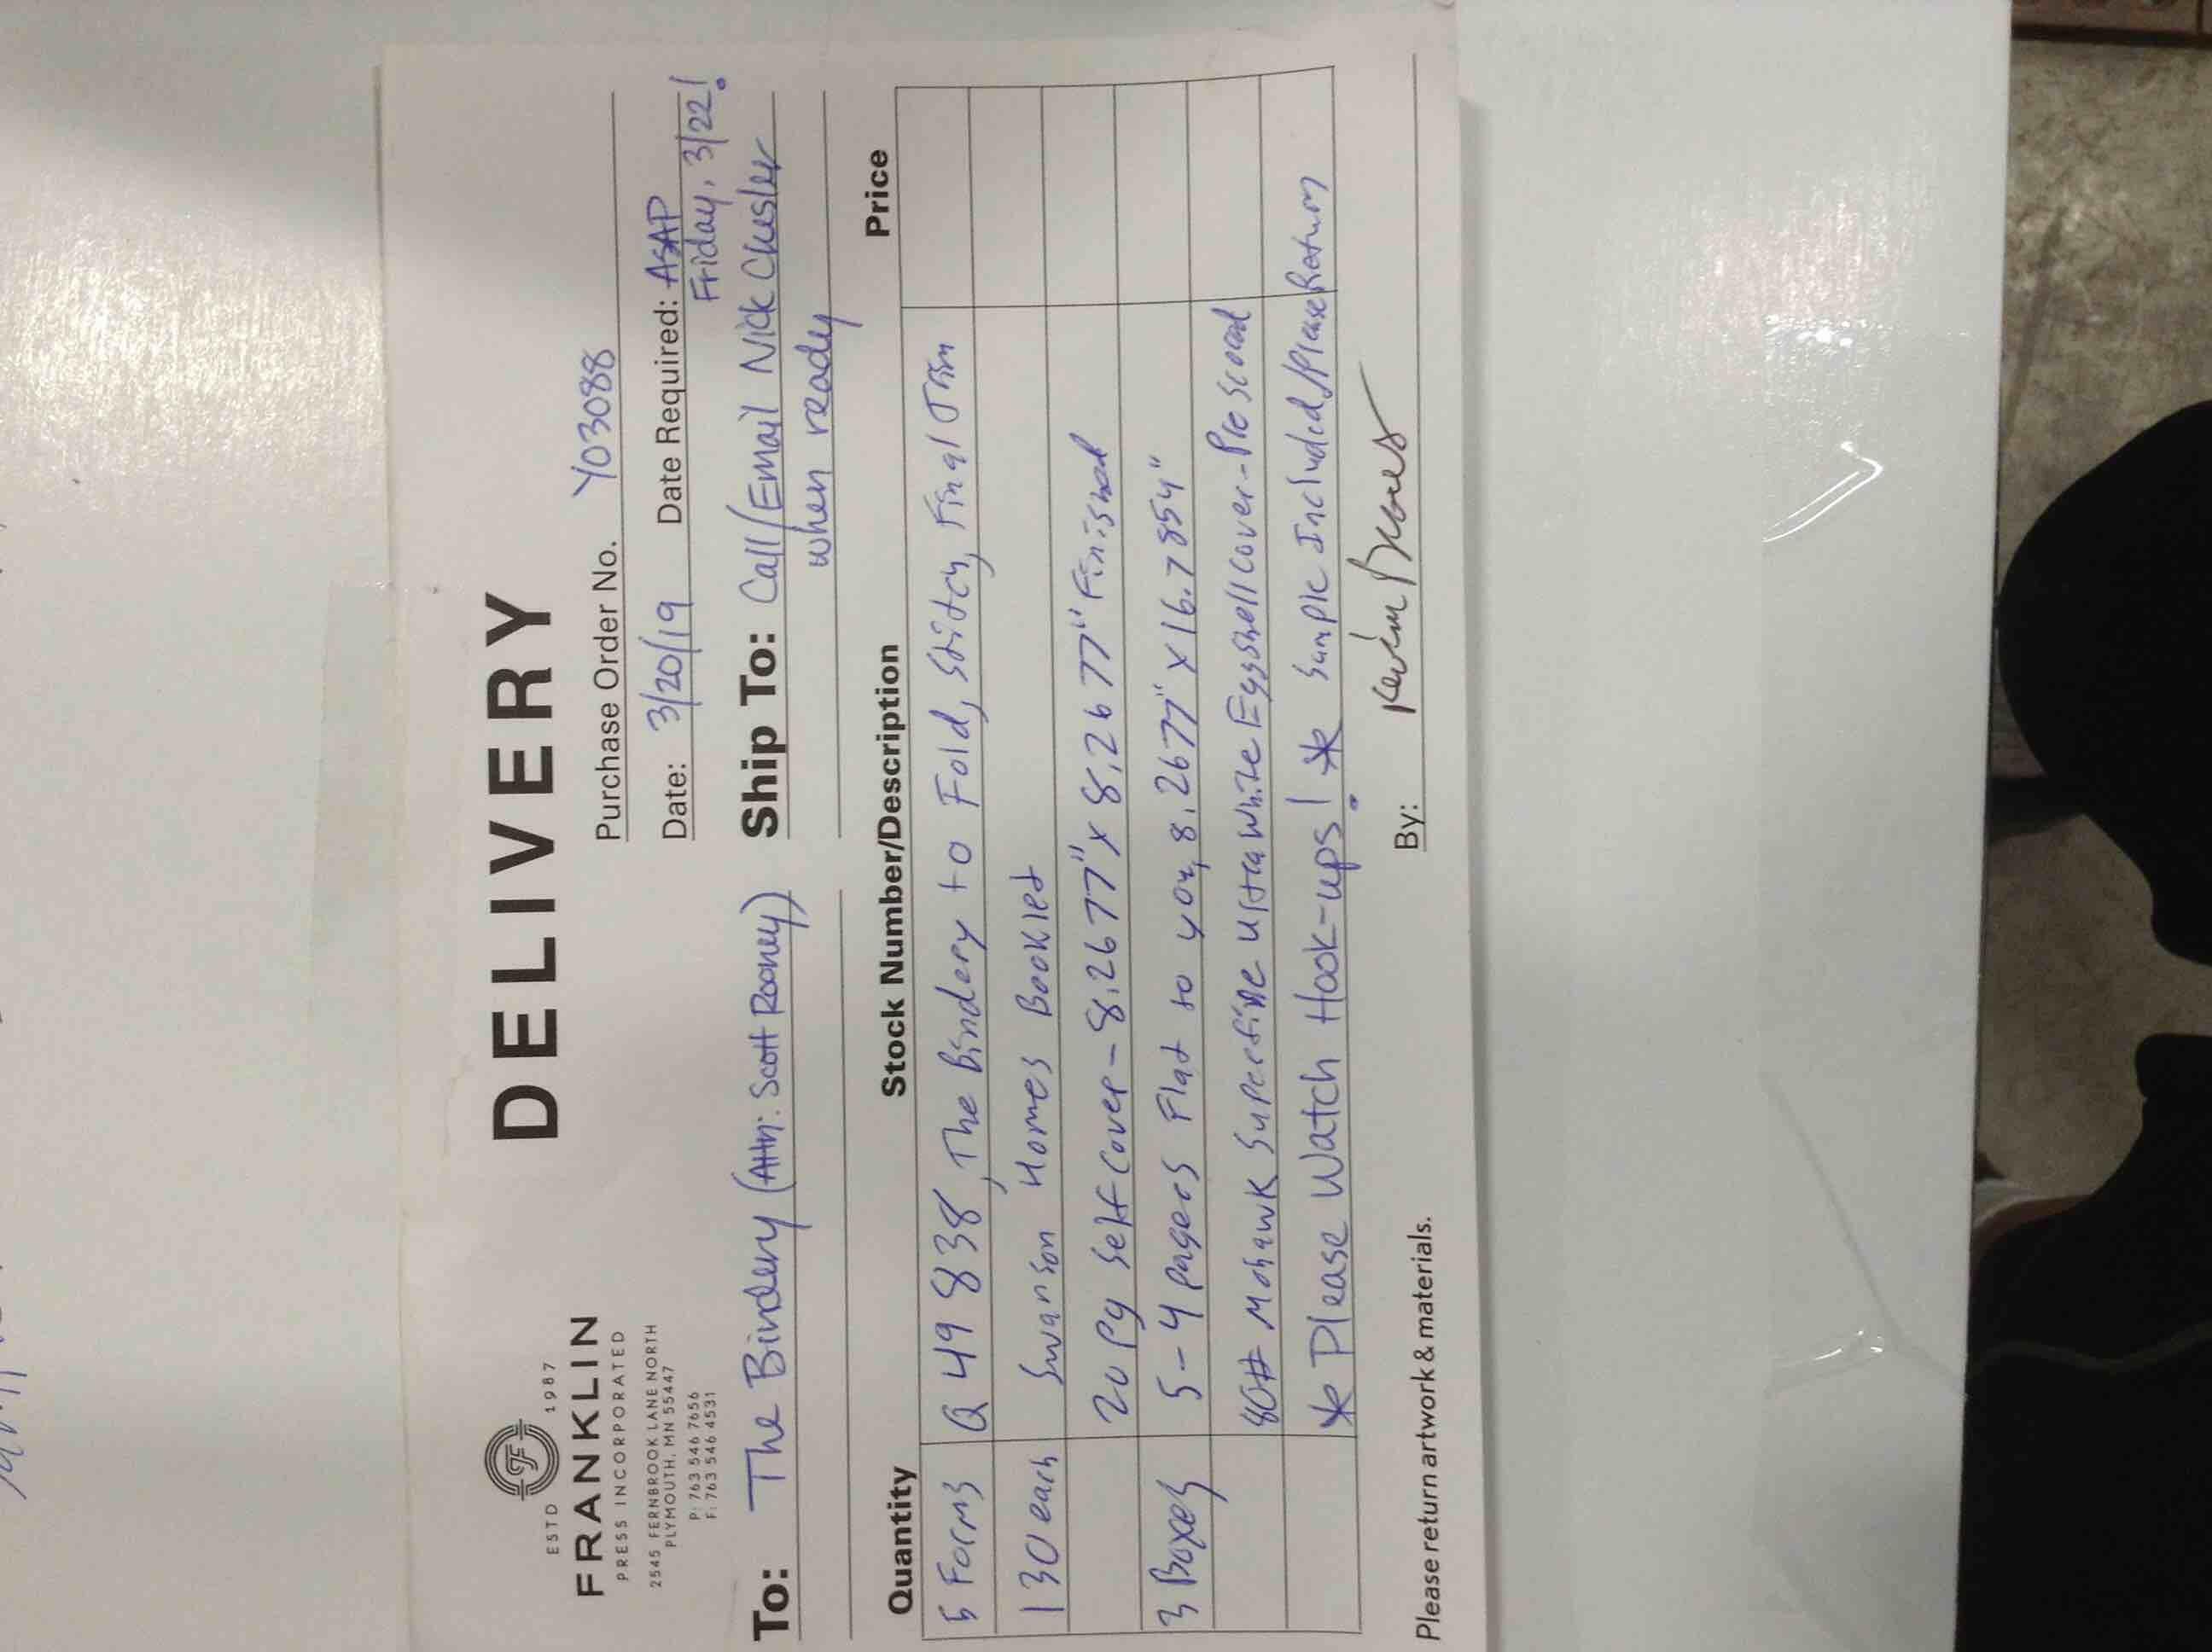 ESTD 1987
FRANKLIN
PRESS INCORPORATED
2545 FERNBROOK LANE NORTH
PLYMOUTH, MN 55447
P: 763 546 7656
F: 763 546 4531
DELIVERY
Purchase Order No. Y03088
Date: 3/20/19 Date Required: ASAP
Friday, 3/22!
To: The Bindery (Attn: Scott Rooney)
Ship To: Call/Email Nick Chesler
when ready
Quantity Stock Number/Description Price
5 Forms Q49838, The Bindery to Fold, Stitch, Final Trim
130 each Swanson Homes Booklet
20 pg Self Cover - 8.2677" x 8.2677" Finished
3 Boxes 5 - 4 pagers Flat to you, 8.2677" x 16.7854"
80# Mohawk Superfine Ultra White Eggshell Cover - Pre Scored
* Please Watch Hook-ups! * Sample Included/Please Return
Please return artwork & materials.
By: Kevin